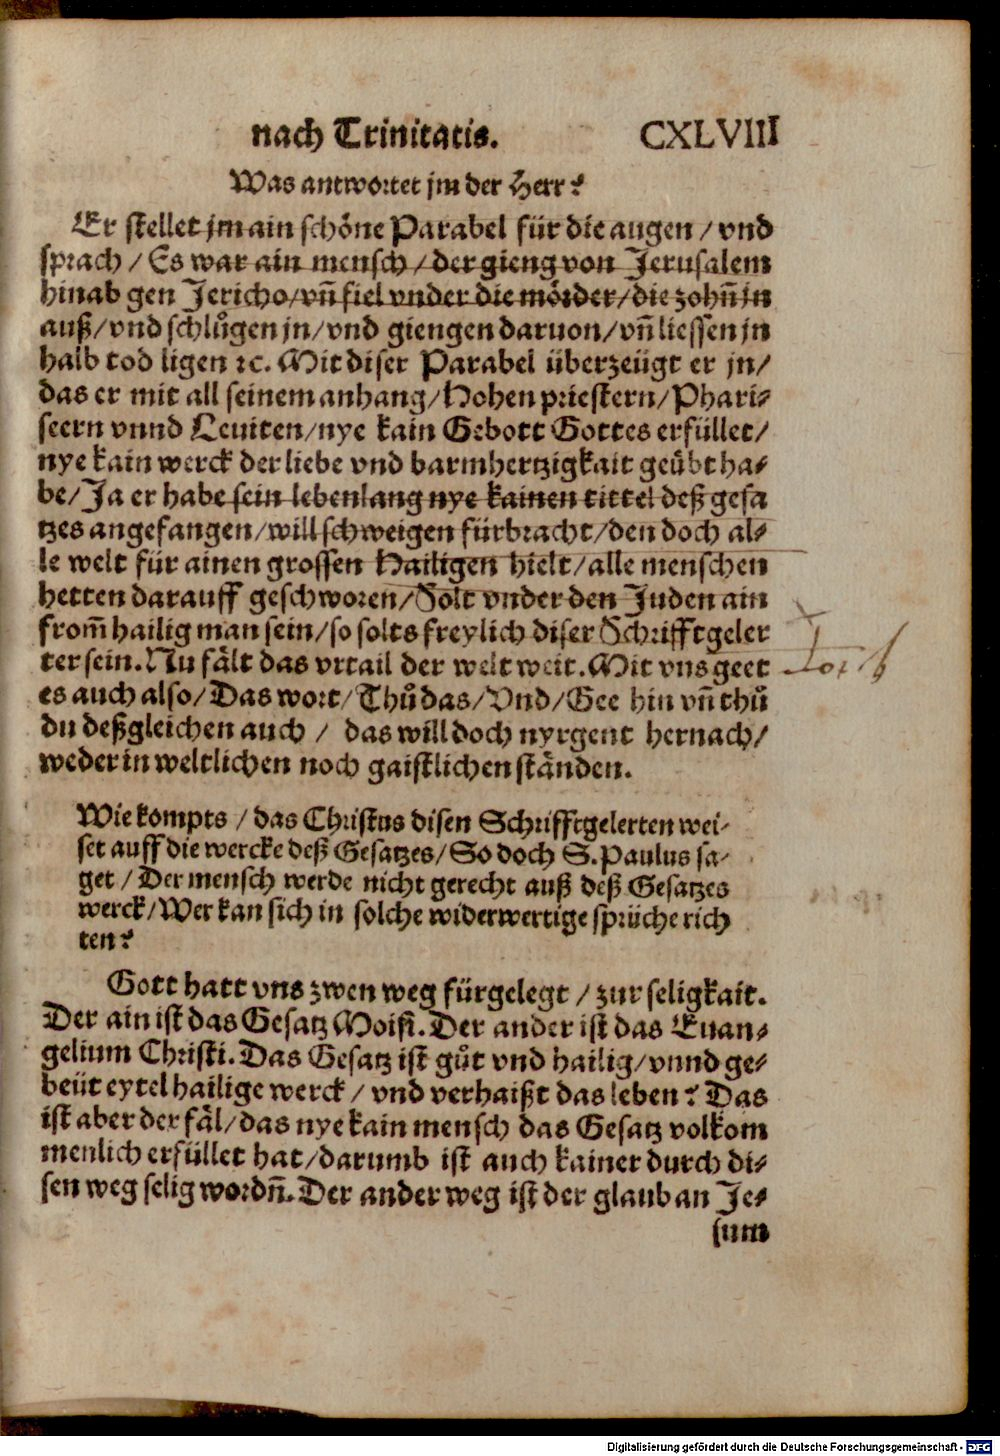 nach Trinitatis. CXLVIII
Was antwortet jm der Herr?
Er stellet jm ain schöne Parabel für die augen / vnd
sprach / Es war ain mensch / der gieng von Jerusalem
hinab gen Jericho / vn̄ fiel vnder die mörder / die zohn̄ jn
auß / vnd schlůgen jn / vnd giengen daruon / vn̄ liessen jn
halb tod ligen ꝛc. Mit diser Parabel überzeügt er jn /
das er mit all seinem anhang / Hohen priestern / Phari⸗
seern vnnd Leuiten / nye kain Gebott Gottes erfüllet /
nye kain werck der liebe vnd barmhertzigkait geübt ha⸗
be / Ja er habe sein lebenlang nye kainen tittel deß gesa
tzes angefangen / will schweigen fürbracht / den doch al⸗
le welt für ainen grossen Hailigen hielt / alle menschen
hetten darauff geschworen / Solt vnder den Juden ain
from̄ hailig man sein / so solts freylich diser Schrifftgeler
ter sein. Nu fält das vrtail der welt weit. Mit vns geet
es auch also / Das wort / Thů das / Vnd / Gee hin vn̄ thů
du deßgleichen auch / das will doch nyrgent hernach /
weder in weltlichen noch gaistlichen ständen.
Wie kompts / das Christus disen Schrifftgelerten wei⸗
set auff die wercke deß Gesatzes / So doch S. Paulus sa⸗
get / Der mensch werde nicht gerecht auß deß Gesatzes
werck / Wer kan sich in solche widerwertige sprüche rich
ten?
Gott hatt vns zwen weg fürgelegt / zur seligkait.
Der ain ist das Gesatz Moisi. Der ander ist das Euan⸗
gelium Christi. Das Gesatz ist gůt vnd hailig / vnnd ge⸗
beüt eytel hailige werck / vnd verhaißt das leben? Das
ist aber der fäl / das nye kain mensch das Gesatz volkom
menlich erfüllet hat / darumb ist auch kainer durch di⸗
sen weg selig wordn̄. Der ander weg ist der glaub an Je⸗
sum
Digitalisierung gefördert durch die Deutsche Forschungsgemeinschaft - DFG